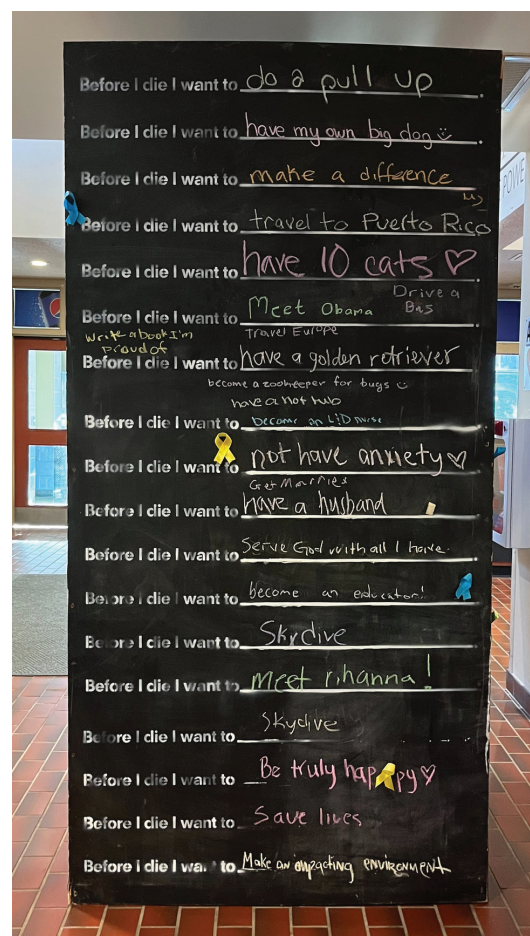 Before I die I want to do a pull up.
Before I die I want to have my own big dog.
Before I die I want to make a difference
Before I die I want to travel to Puerto Rico
Before I die I want to have 10 cats ♡.
Drive a Bus
Before I die I want to Meet Obama
Write a book I'm proud of
Travel Europe
Before I die I want to have a golden retriever
become a zookeeper for bugs
have a hot tub
Before I die I want to become an L&D nurse
Before I die I want to not have anxiety ♡
Get Married
Before I die I want to have a husband
Before I die I want to Serve God with all I have.
Before I die I want to become an educator!
Before I die I want to Skydive
Before I die I want to meet rihanna!
Before I die I want to Skydive
Before I die I want to Be truly happy ♡
Before I die I want to Save lives
Before I die I wa to Make an impacting environment
POWE